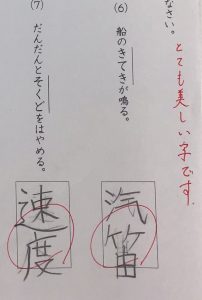 なさい。
とても美しい字です
(6) 船のきてきが鳴る。
汽笛
(7) だんだんとそくどをはやめる。
速度